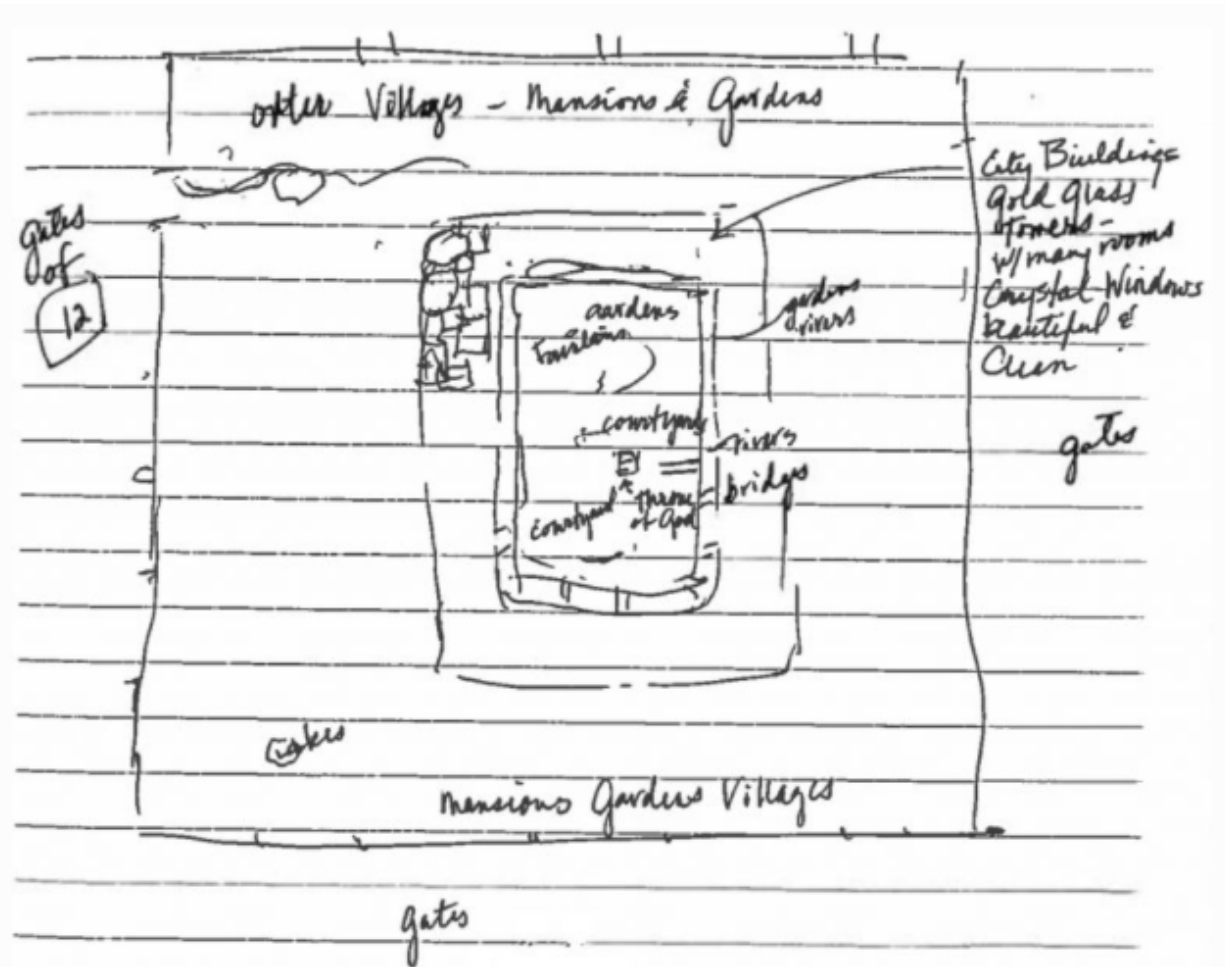 outer Villages - Mansions & Gardens
City Buildings
Gold Glass
Towers -
w/ many rooms
Crystal Windows
beautiful &
Clean
gates
of
12
gardens
Fountains
gardens
rivers
courtyard
rivers
bridges
courtyard
Throne
of God
gates
Lakes
Mansions Gardens Villages
gates